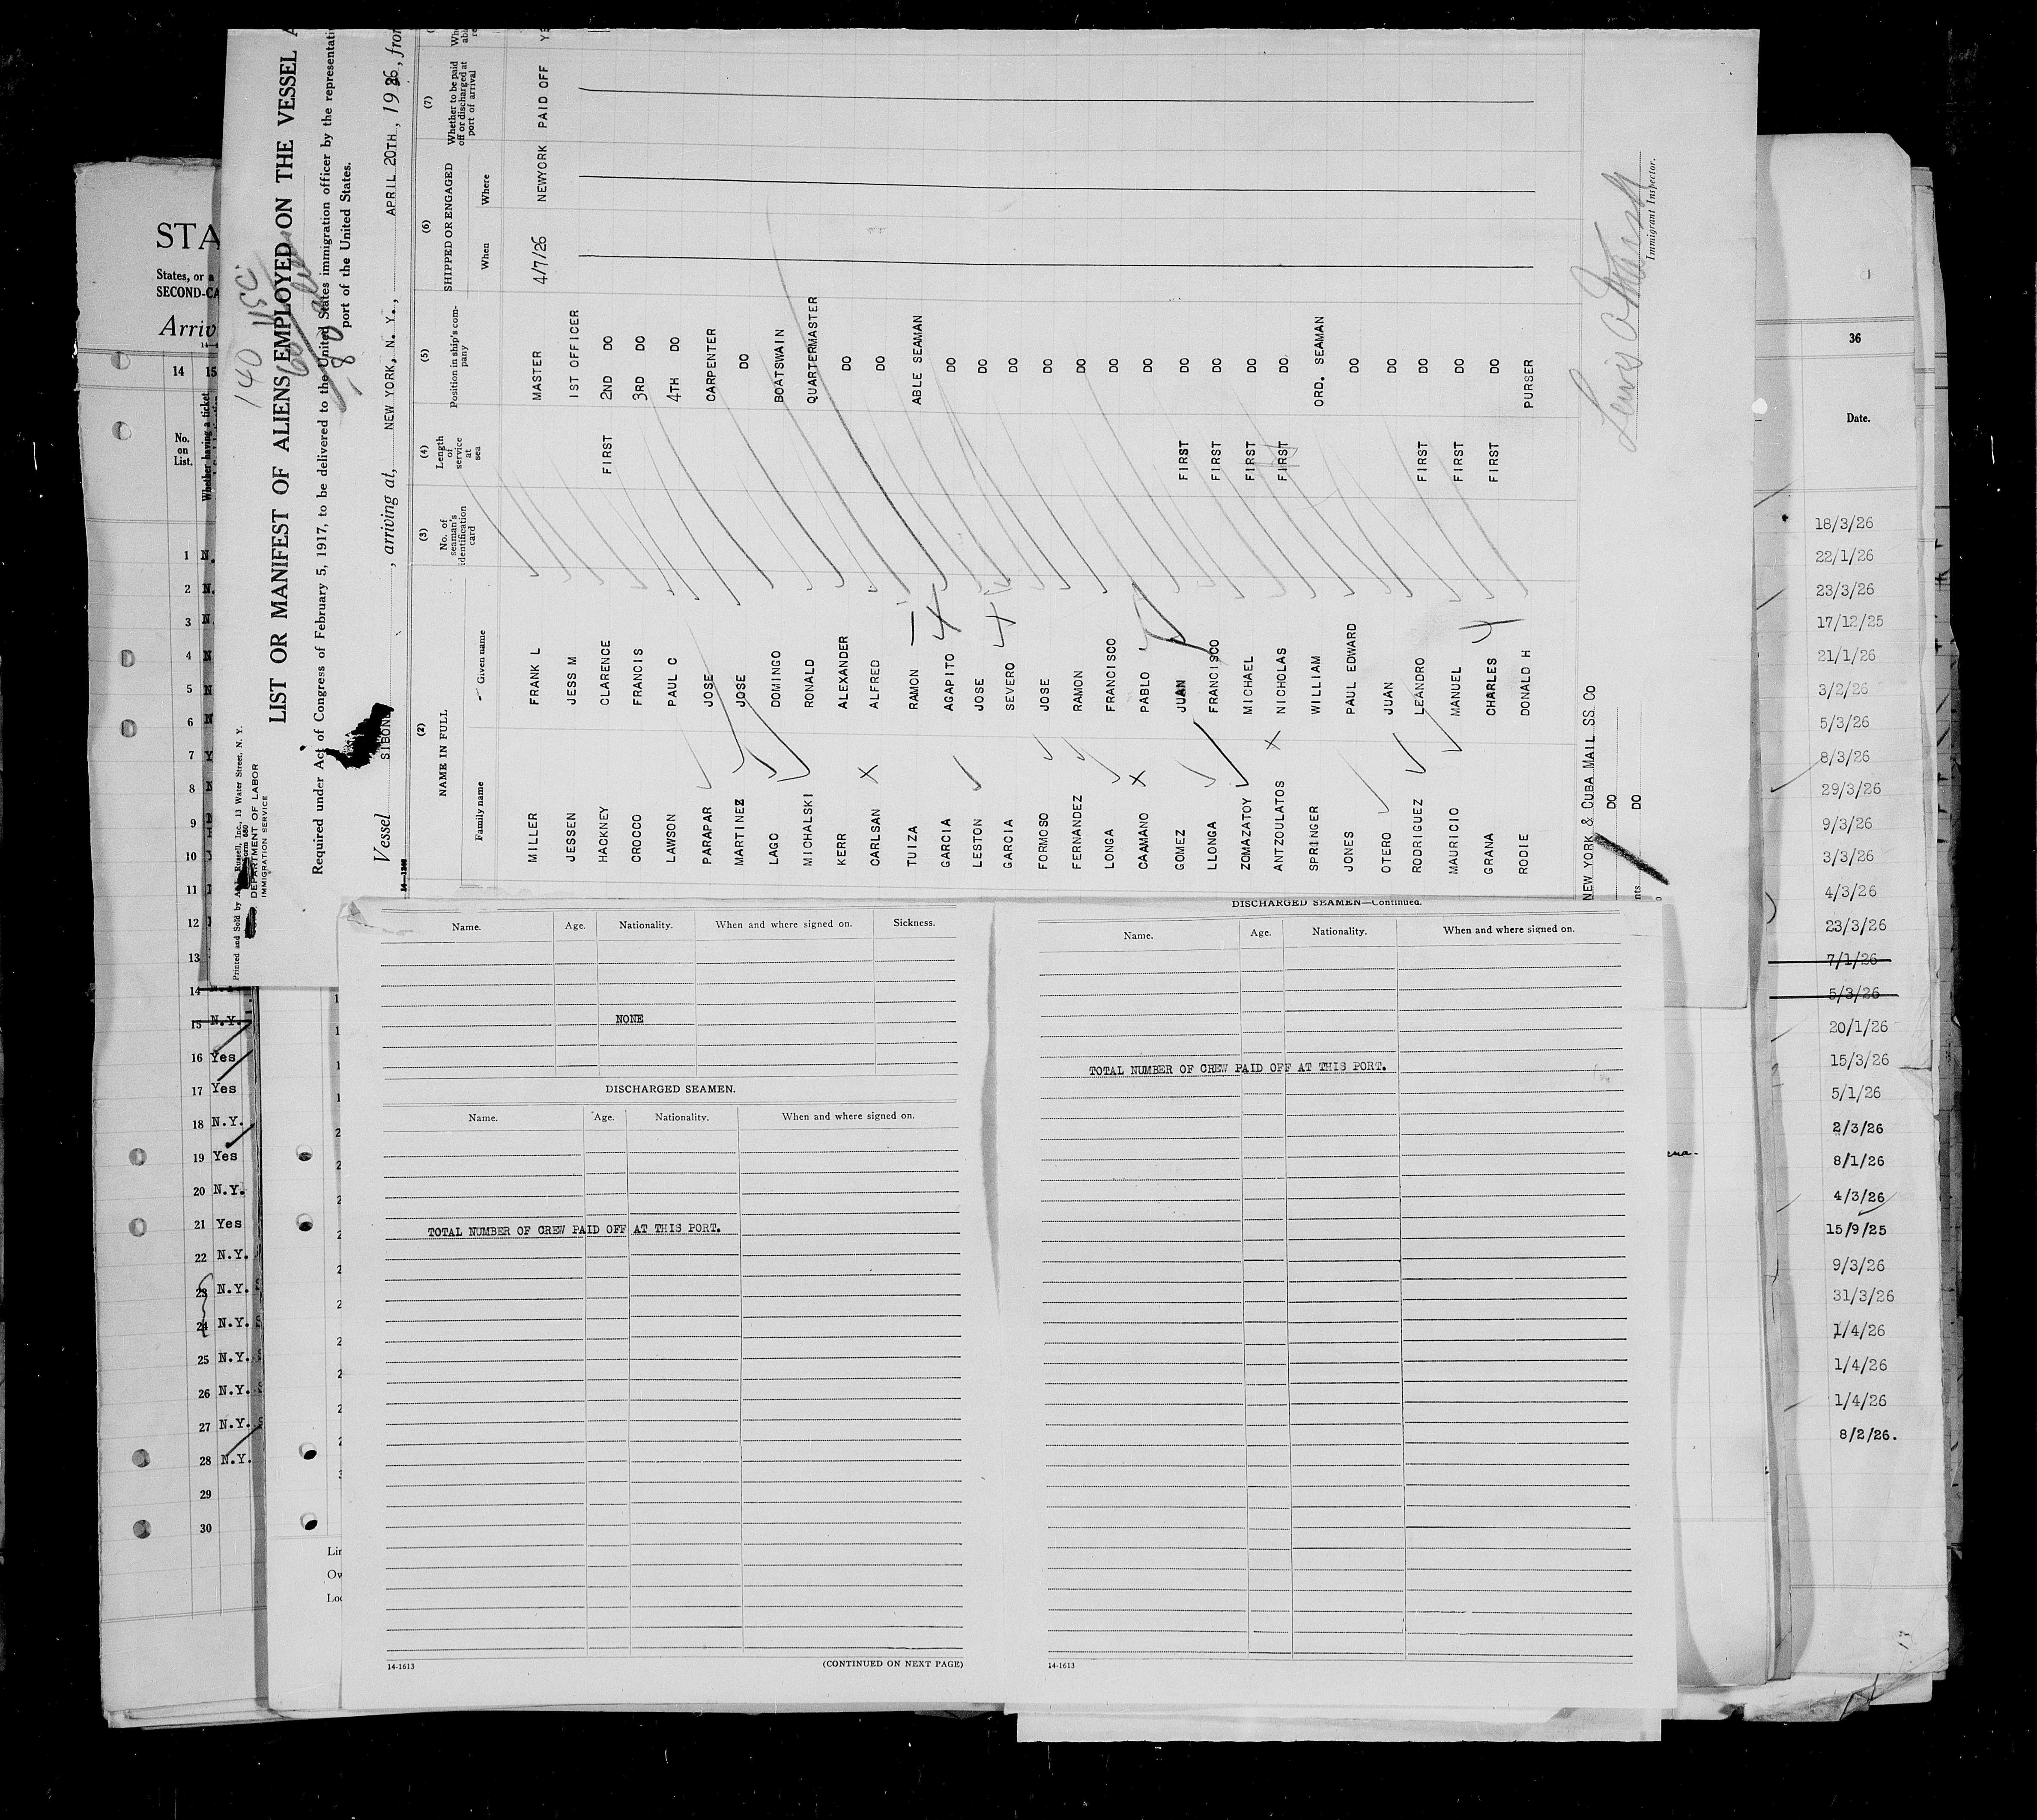 Printed and Sold by
Russell, Inc., 13 Water Street, N. Y.
Form 680
DEPARTMENT OF LABOR
IMMIGRATION SERVICE
140 USC
LIST OR MANIFEST OF ALIENS EMPLOYED ON THE VESSEL A
Required under Act of Congress of February 5, 1917, to be delivered to the United States immigration officer by the representati
port of the United States.
Vessel SIBONE , arriving at, NEW YORK, N. Y., APRIL 20TH , 1926, from
(2) (3) (4) (5) (6) (7)
NAME IN FULL
Family name Given name
No. of seaman's identification card
Length of service at sea
Position in ship's company
SHIPPED OR ENGAGED
When Where
Whether to be paid off or discharged at port of arrival
MILLER FRANK L MASTER 4/7/26 NEWYORK PAID OFF YE
JESSEN JESS M 1ST OFFICER
HACKNEY CLARENCE FIRST 2ND DO
CROCCO FRANCIS 3RD DO
LAWSON PAUL C 4TH DO
PARAPAR JOSE CARPENTER
MARTINEZ JOSE DO
LAGO DOMINGO BOATSWAIN
MICHALSKI RONALD QUARTERMASTER
KERR ALEXANDER DO
CARLSAN ALFRED DO
TUIZA RAMON ABLE SEAMAN
GARCIA AGAPITO DO
LESTON JOSE DO
GARCIA SEVERO DO
FORMOSO JOSE DO
FERNANDEZ RAMON DO
LONGA FRANCISCO DO
CAAMANO PABLO DO
GOMEZ JUAN FIRST DO
LLONGA FRANCISCO FIRST DO
ZOMAZATOY MICHAEL FIRST DO
ANTZOULATOS NICHOLAS FIRST DO.
SPRINGER WILLIAM ORD. SEAMAN
JONES PAUL EDWARD DO
OTERO JUAN DO
RODRIGUEZ LEANDRO FIRST DO
MAURICIO MANUEL FIRST DO
GRANA CHARLES FIRST DO
RODIE DONALD H PURSER
NEW YORK & CUBA MAIL SS Co
DO DO
Immigrant Inspector.
STA
States, or a
SECOND-CA
Arriv
14 15
No. on List.
Whether having a ticket
1 N.
2 N.
3 N.
4 N
5 N
6 N
7 Y
8 N
9 N
10 Y
11
12
13
14
15 N.Y.
16 Yes
17 Yes
18 N.Y.
19 Yes
20 N.Y.
21 Yes
22 N.Y.
23 N.Y.
24 N.Y.
25 N.Y.
26 N.Y.
27 N.Y.
28 N.Y.
29
30
Name. Age. Nationality. When and where signed on. Sickness.
NONE
DISCHARGED SEAMEN.
Name. Age. Nationality. When and where signed on.
TOTAL NUMBER OF CREW PAID OFF AT THIS PORT.
14-1613 (CONTINUED ON NEXT PAGE)
DISCHARGED SEAMEN—Continued.
Name. Age. Nationality. When and where signed on.
TOTAL NUMBER OF CREW PAID OFF AT THIS PORT.
14-1613
36
Date.
18/3/26
22/1/26
23/3/26
17/12/25
21/1/26
3/2/26
5/3/26
8/3/26
29/3/26
9/3/26
3/3/26
4/3/26
23/3/26
7/1/26
5/3/26
20/1/26
15/3/26
5/1/26
2/3/26
8/1/26
4/3/26
15/9/25
9/3/26
31/3/26
1/4/26
1/4/26
1/4/26
8/2/26.